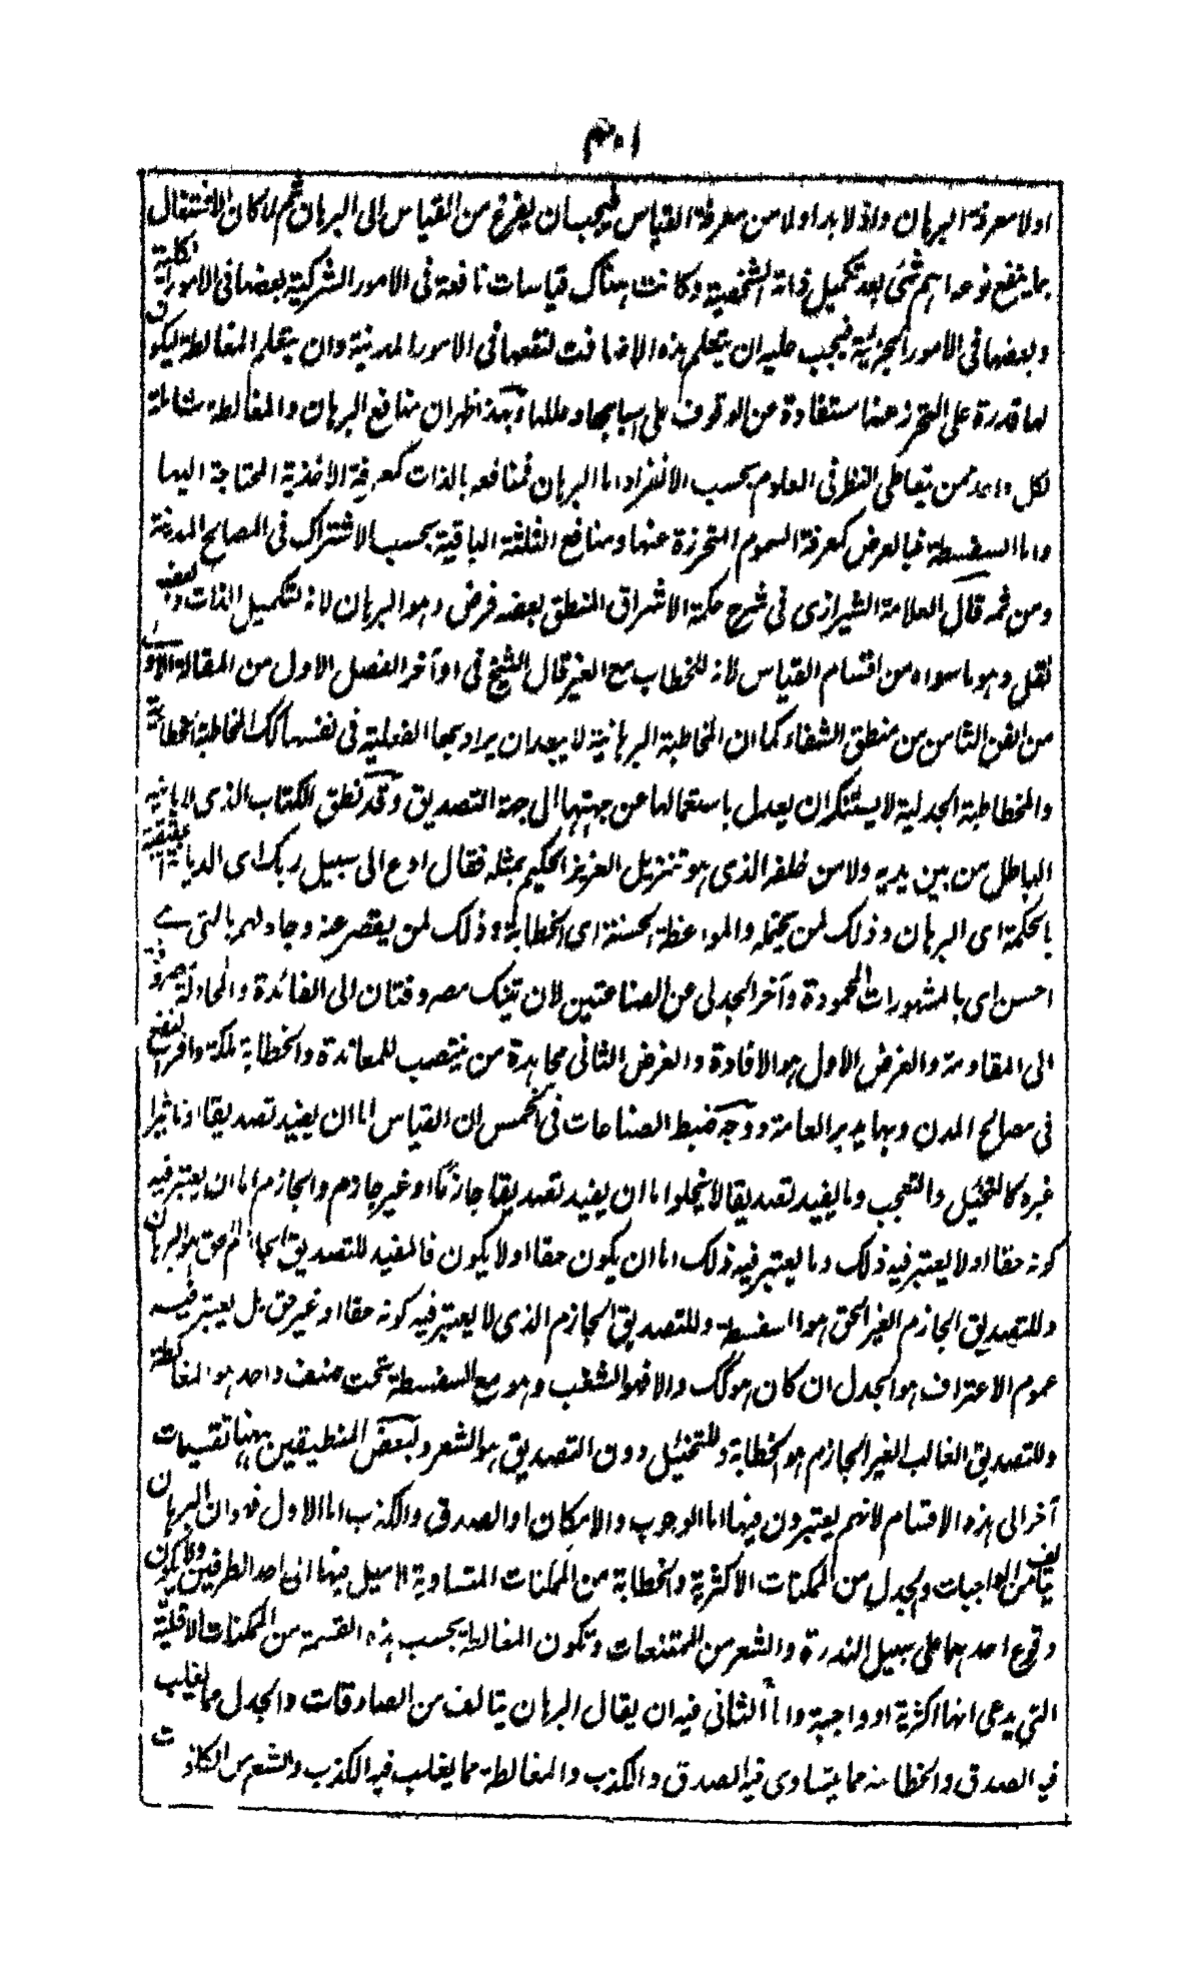 ۳۰۱
اولا معرفة البرهان واذ لا بد اولا من معرفة القياس فيجب ان يفرغ من القياس الى البرهان ثم لما كان الاشتغال
بما ينفع نوعه اهم شئ بعد تكميل ذاته الشخصية وكانت هناك قياسات نافعة فى الامور الشركية بعضها فى الامور الكلية
وبعضها فى الامور الجزئية فيجب عليه ان يتعلم هذه الاضافت لنفعها فى الامور المدنية وان يتعلم المغالطة ليكون
لها قدرة على التحرز عنها مستفادة من الوقوف على اسبابها وعللها وبهذا ظهر ان منافع البرهان والمغالطة شاملة
لكل واحد ممن يتعاطى النظر فى العلوم بحسب الانفراد اما البرهان فمنافعه بالذات كمعرفة الاغذية المحتاجة اليها
واما السفسطة فبالعرض كمعرفة السموم المتحرزة عنها ومنافع الثلثة الباقية بحسب الاشتراك فى المصالح المدنية
ومن ثمه قال العلامة الشيرازى فى شرح حكمة الاشراق المنطق بعضه فرض وهو البرهان لانه لتكميل الذات وبعضه
نفل وهو ما سواه من اقسام القياس لانه للخطاب مع الغير قال الشيخ فى اواخر الفصل الاول من المقالة الاولى
من الفن الثامن من منطق الشفاء كما ان المخاطبة البرهانية لا يبعد ان يراد بها الفعلية فى نفسها كك المخاطبة الخطابية
والمخاطبة الجدلية لا يستنكر ان يعدل باستعمالها عن جهتها الى جهة التصديق وقد نطق الكتاب الذى لا ياتيه
الباطل من بين يديه ولا من خلفه الذى هو تنزيل العزيز الحكيم بمثله فقال ادع الى سبيل ربك اى الديانة الحقيقية
بالحكمة اى البرهان وذلك لمن يحتمله والموعظة الحسنة اى الخطابة وذلك لمن يقصر عنه وجادلهم بالتى هے
احسن اى بالمشهورات المحمودة وآخر الجدلى عن الصناعتين لان تينك مصروفتان الى الفائدة والمجادلة مصروفة
الى المقاومة والغرض الاول هو الافادة والغرض الثانى مجاهدة من ينتصب للمعاندة والخطابة ملكة وافرة النفع
فى مصالح المدن وبها يدبر العامة ووجه ضبط الصناعات فى الخمس ان القياس اما ان يفيد تصديقا او تاثيرا
غيره كالتخئيل والتعجب وما يفيد تصديقا لا يخلو اما ان يفيد تصديقا جازما او غير جازم والجازم اما ان يعتبر فيه
كونه حقا او لا يعتبر فيه ذلك وما يعتبر فيه ذلك اما ان يكون حقا او لا يكون فالمفيد للتصديق الجازم الحق هو البرهان
وللتصديق الجازم الغير الحق هو السفسطة وللتصديق الجازم الذى لا يعتبر فيه كونه حقا او غير حق بل يعتبر فيہ
عموم الاعتراف هو الجدل ان كان هو كك والا فهو الشغب وهو مع السفسطة تحت صنف واحد هو المغالطة
وللتصديق الغالب الغير الجازم هو الخطابة وللتخئيل دون التصديق هو الشعر ولبعض المنطيقين ههنا تقسيمات
آخر الى هذه الاقسام لانهم يعتبرون فيها اما الوجوب والامكان او الصدق والكذب اما الاول فهو ان البرهان
يتالف من الواجبات والجدل من الممكنات الاكثرية والخطابة من الممكنات المتساوية لا ميل فيها الى احد الطرفين ولا يكون
وقوع احدهما على سبيل الندرة والشعر من الممتنعات وتكون المغالطة بحسب هذه القسمة من الممكنات الاقلية
التى يدعى انها اكثرية او واجبة واما الثانى فهو ان يقال البرهان يتالف من الصادقات والجدل مما يغلب
فيه الصدق والخطابة مما يتساوى فيه الصدق والكذب والمغالطة مما يغلب فيه الكذب والشعر من الكاذبات